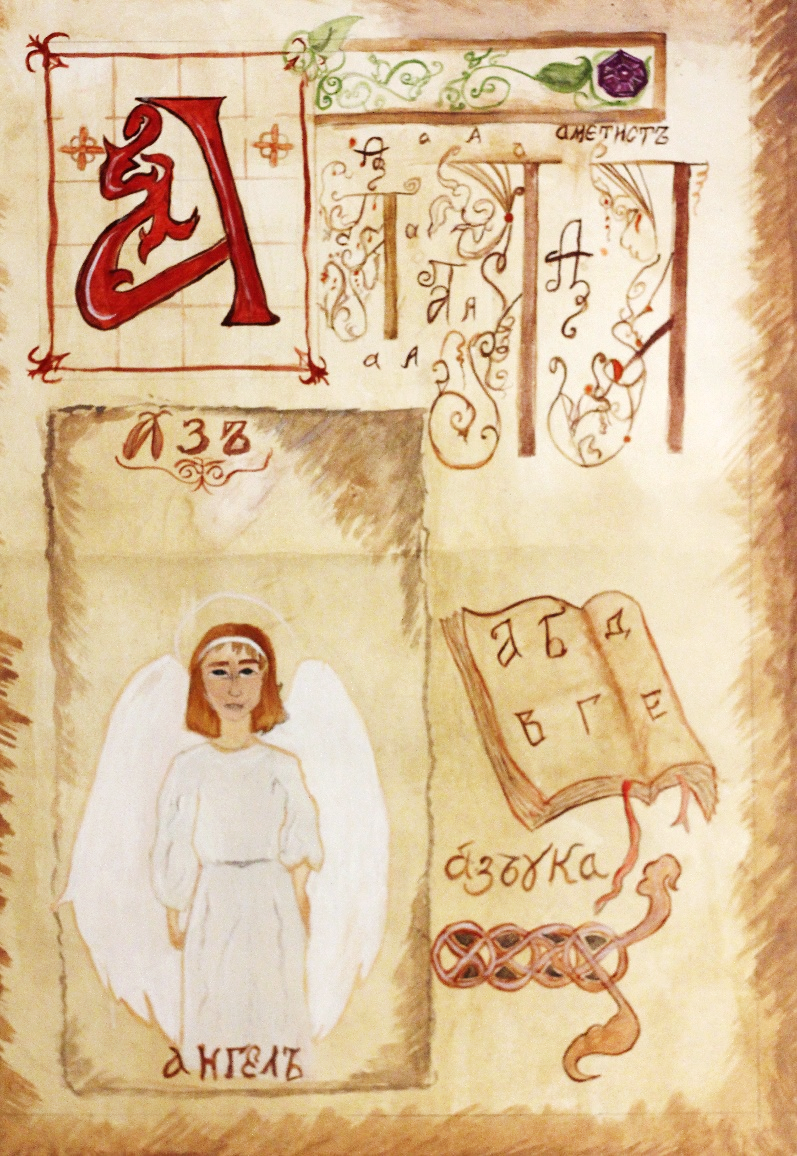 А
а А
аметистъ
А
а
А
А а
а А
азъ
А Б Д
В Г Е
азъука
ангелъ